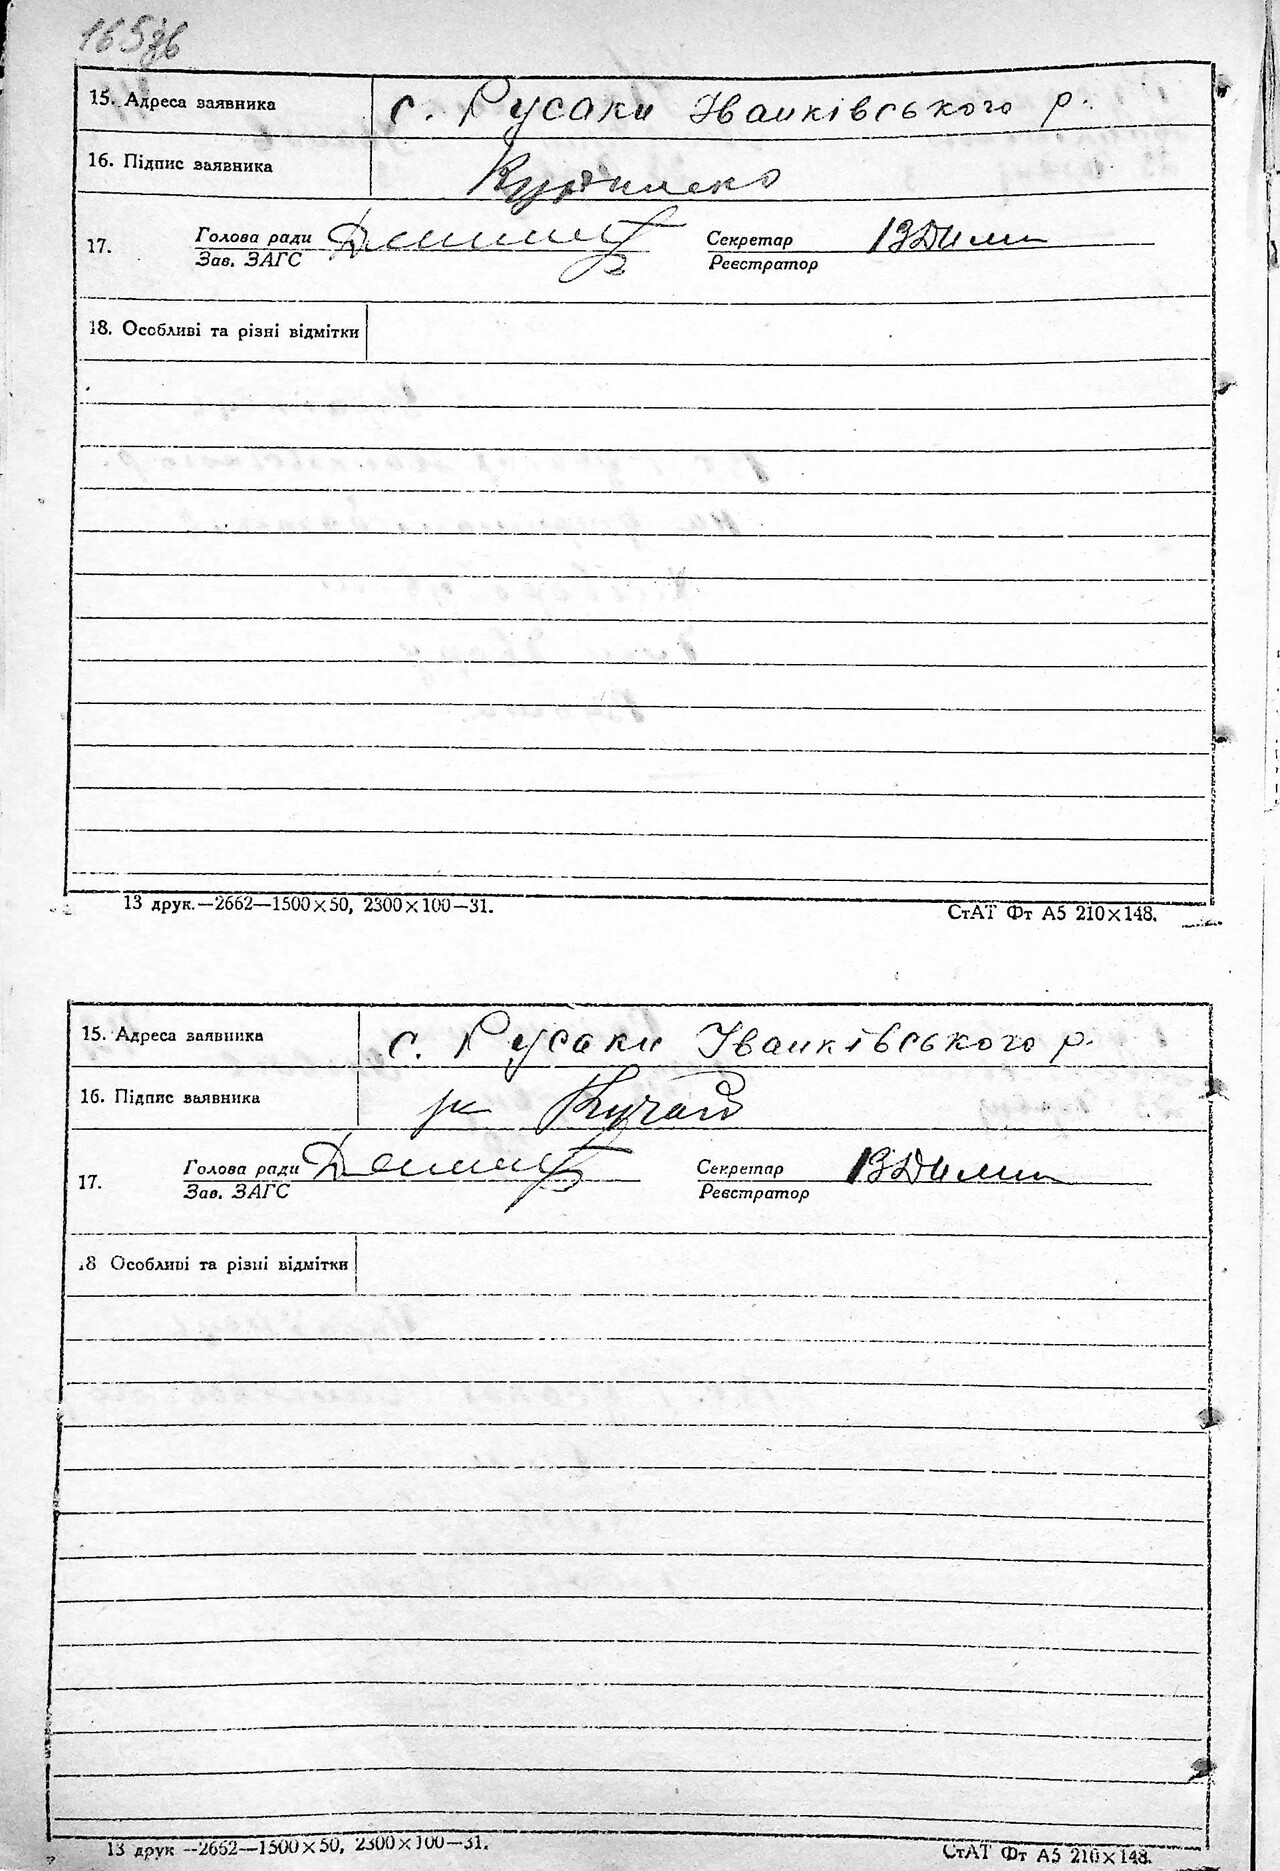 165зв
15. Адреса заявника с. Русаки Іванківського р.
16. Підпис заявника
17. Голова ради Секретар
Зав. ЗАГС Реєстратор
18. Особливі та різні відмітки
13 друк.—2662—1500×50, 2300×100—31.
СтАТ Фт А5 210×148.
15. Адреса заявника с. Русаки Іванківського р.
16. Підпис заявника
17. Голова ради Секретар
Зав. ЗАГС Реєстратор
18 Особливі та різні відмітки
13 друк—2662—1500×50, 2300×100—31.
СтАТ Фт А5 210×148.